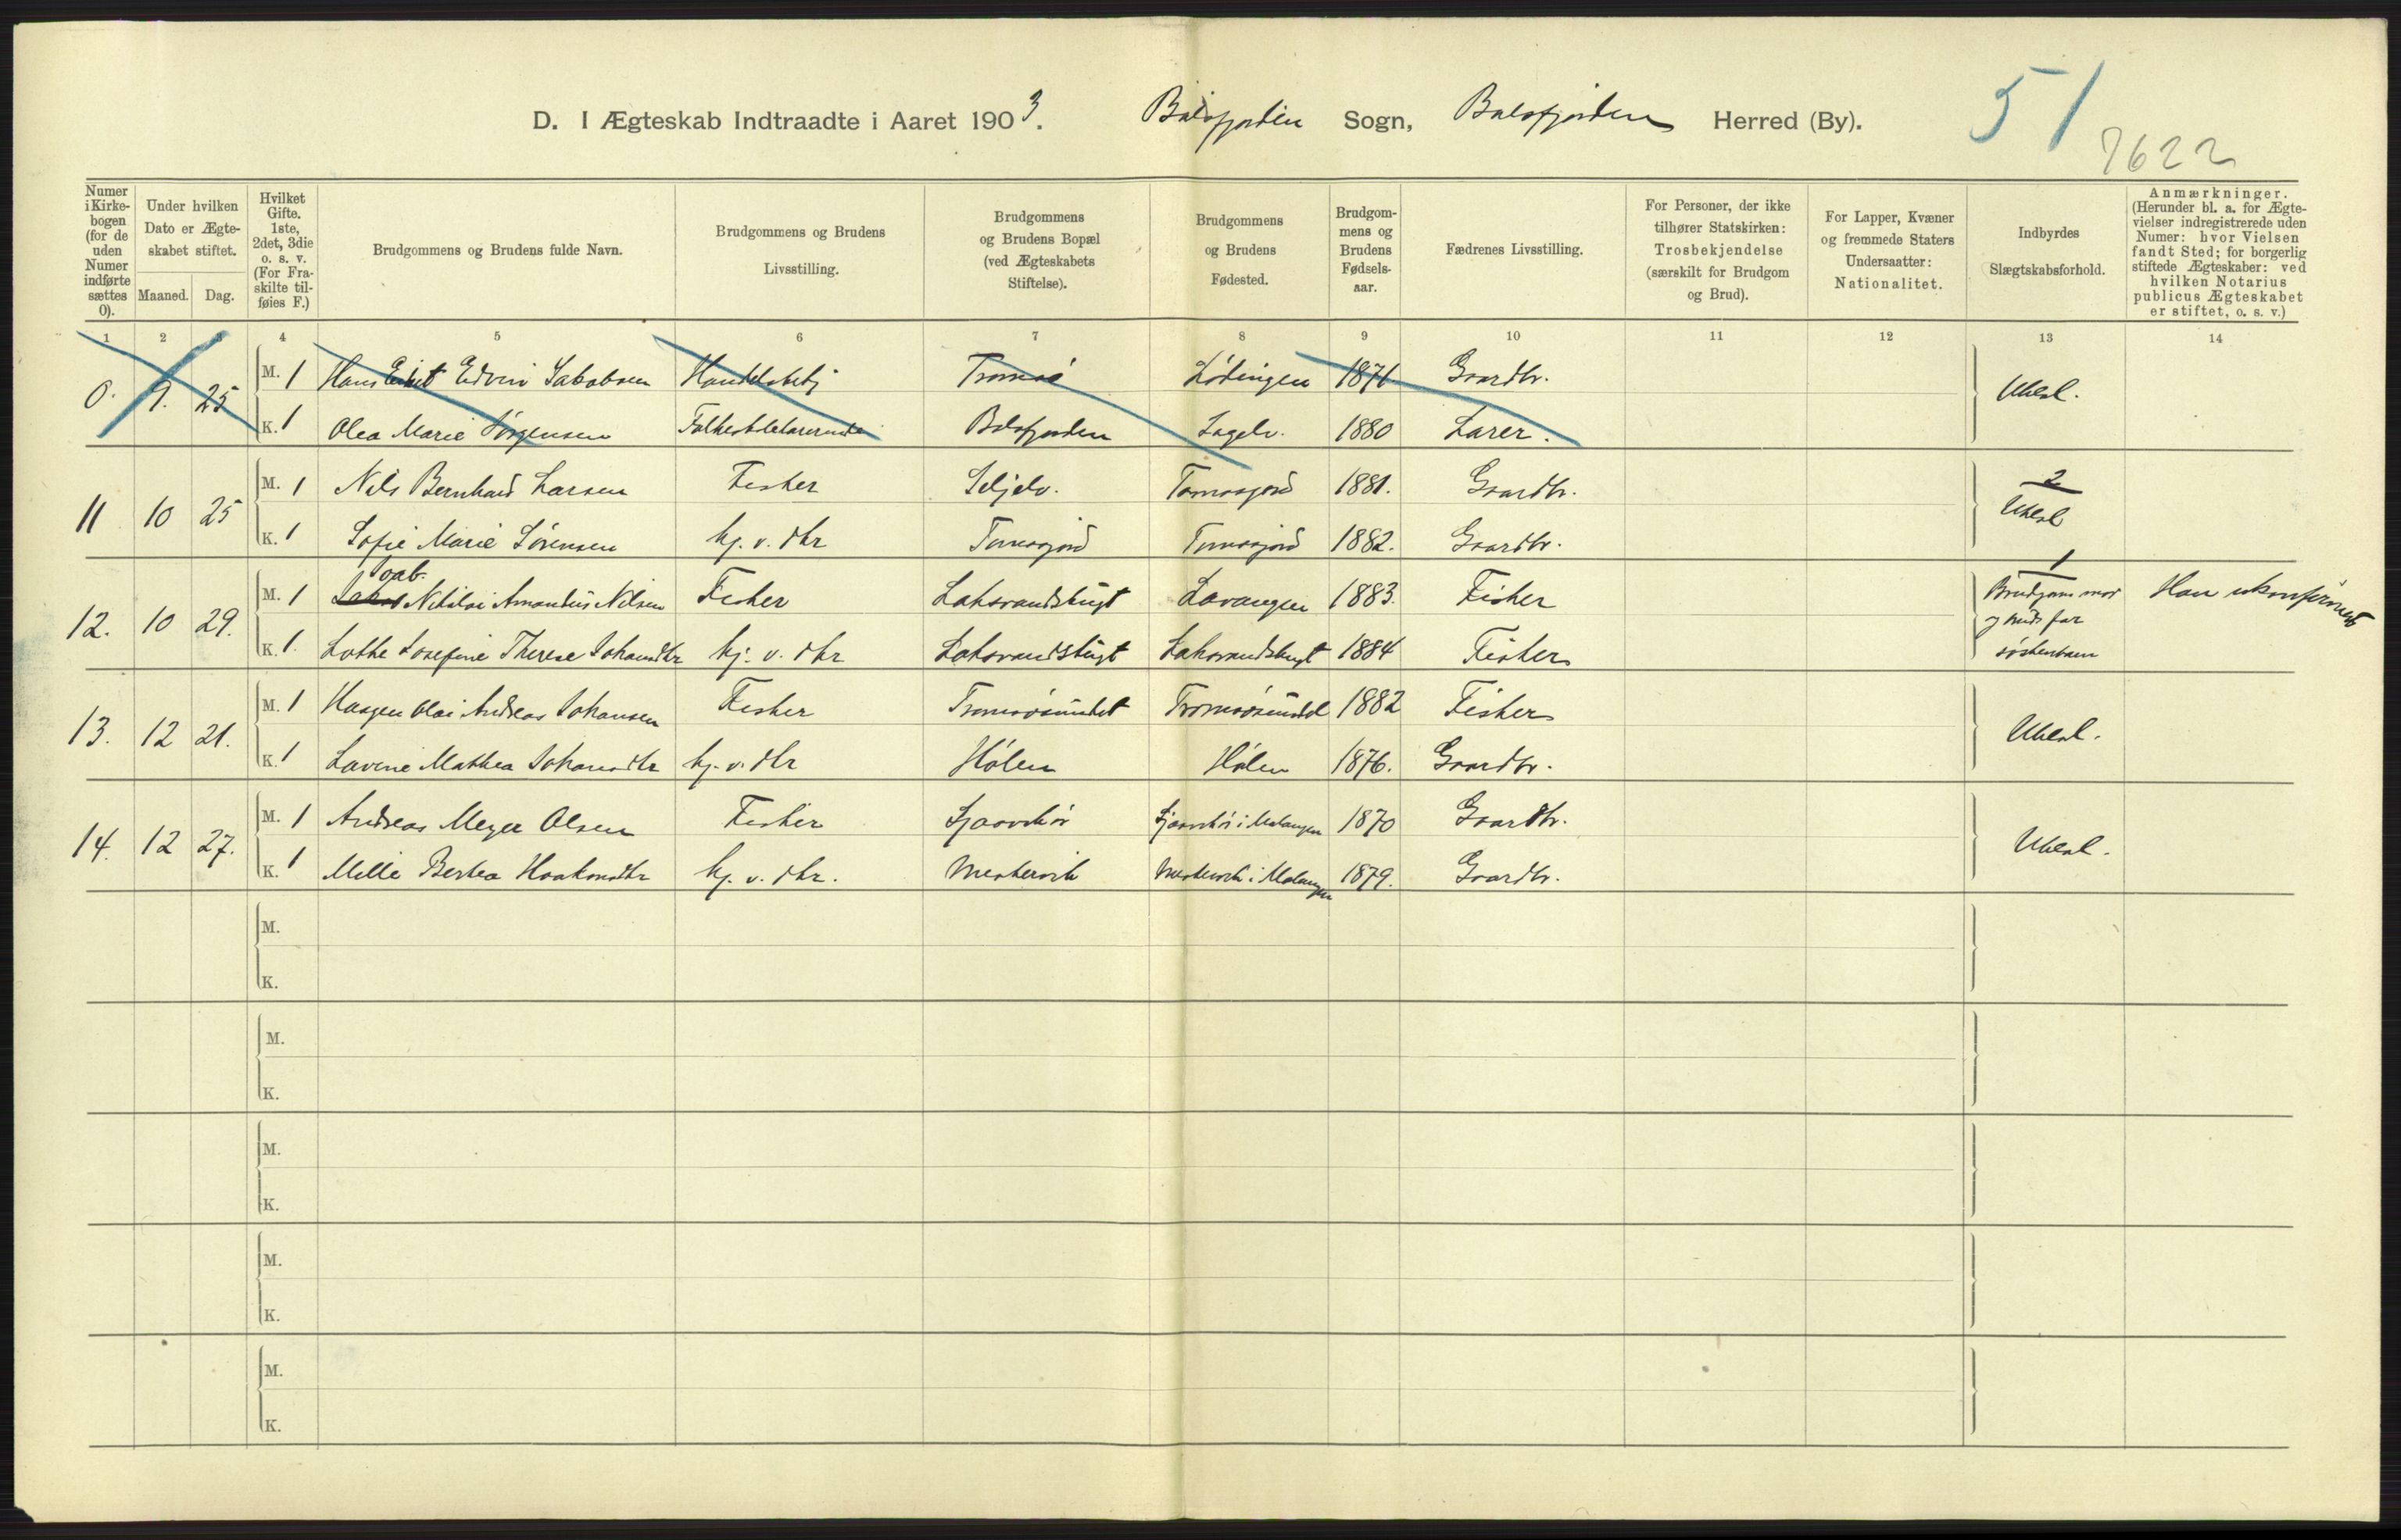 D. I Ægteskab Indtraadte i Aaret 1903. Balsfjorden Sogn, Balsfjorden Herred (By). 51
7622
Numer i Kirkebogen (for de uden Numer indførte sættes 0).
Under hvilken Dato er Ægteskabet stiftet. Maaned. Dag.
Hvilket Gifte. 1ste, 2det, 3die o. s. v. (For Fraskilte tilføies F.)
Brudgommens og Brudens fulde Navn.
Brudgommens og Brudens Livsstilling.
Brudgommens og Brudens Bopæl (ved Ægteskabets Stiftelse).
Brudgommens og Brudens Fødested.
Brudgommens og Brudens Fødselsaar.
Fædrenes Livsstilling.
For Personer, der ikke tilhører Statskirken: Trosbekjendelse (særskilt for Brudgom og Brud).
For Lapper, Kvæner og fremmede Staters Undersaatter: Nationalitet.
Indbyrdes Slægtskabsforhold.
Anmærkninger. (Herunder bl. a. for Ægtevielser indregistrerede uden Numer: hvor Vielsen fandt Sted; for borgerlig stiftede Ægteskaber: ved hvilken Notarius publicus Ægteskabet er stiftet, o. s. v.)
1 2 3 4 5 6 7 8 9 10 11 12 13 14
0. 9. 25 M. 1 Hans Edvin Jakobsen Handelsbetj Tromsø Lødingen 1871 Gaardbr. Ubesl.
K. 1 Olea Marie Jørgensen Balsfjorden Sagelv. 1880 Lærer.
11 10 25 M. 1 Nils Bernhard Larsen Fisker Seljelv. Tomasjord 1881. Gaardbr. 2 Ubesl
K. 1 Sofie Marie Sørensen hj. v. dtr Tomasjord Tomasjord 1882. Gaardbr.
12. 10 29. M. 1 Joab. Nikolai Amandus Nilsen Fisker Laksvandsbugt Lavangen 1883. Fisker 1 Brudgoms mor og bruds far søskenbarn Han ukonfirmert
K. 1. Lothe Josefine Therese Johansdtr hj. v. dtr Laksvandsbugt Laksvandsbugt 1884 Fisker
13. 12 21. M. 1 Haagen Olai Andreas Johansen Fisker Tromsøsundet Tromsøsundet 1882 Fisker Ubesl.
K. 1 Lavine Mathea Johansdtr hj. v. dtr Hølen Hølen 1876. Gaardbr.
14. 12 27. M. 1 Andreas Meyer Olsen Fisker i Malangen 1870 Gaardbr. Ubesl.
K. 1 Mille Bertea Haakonsdtr hj. v. dtr. Mestervik Mestervik i Malangen 1879. Gaardbr.
M.
K.
M.
K.
M.
K.
M.
K.
M.
K.